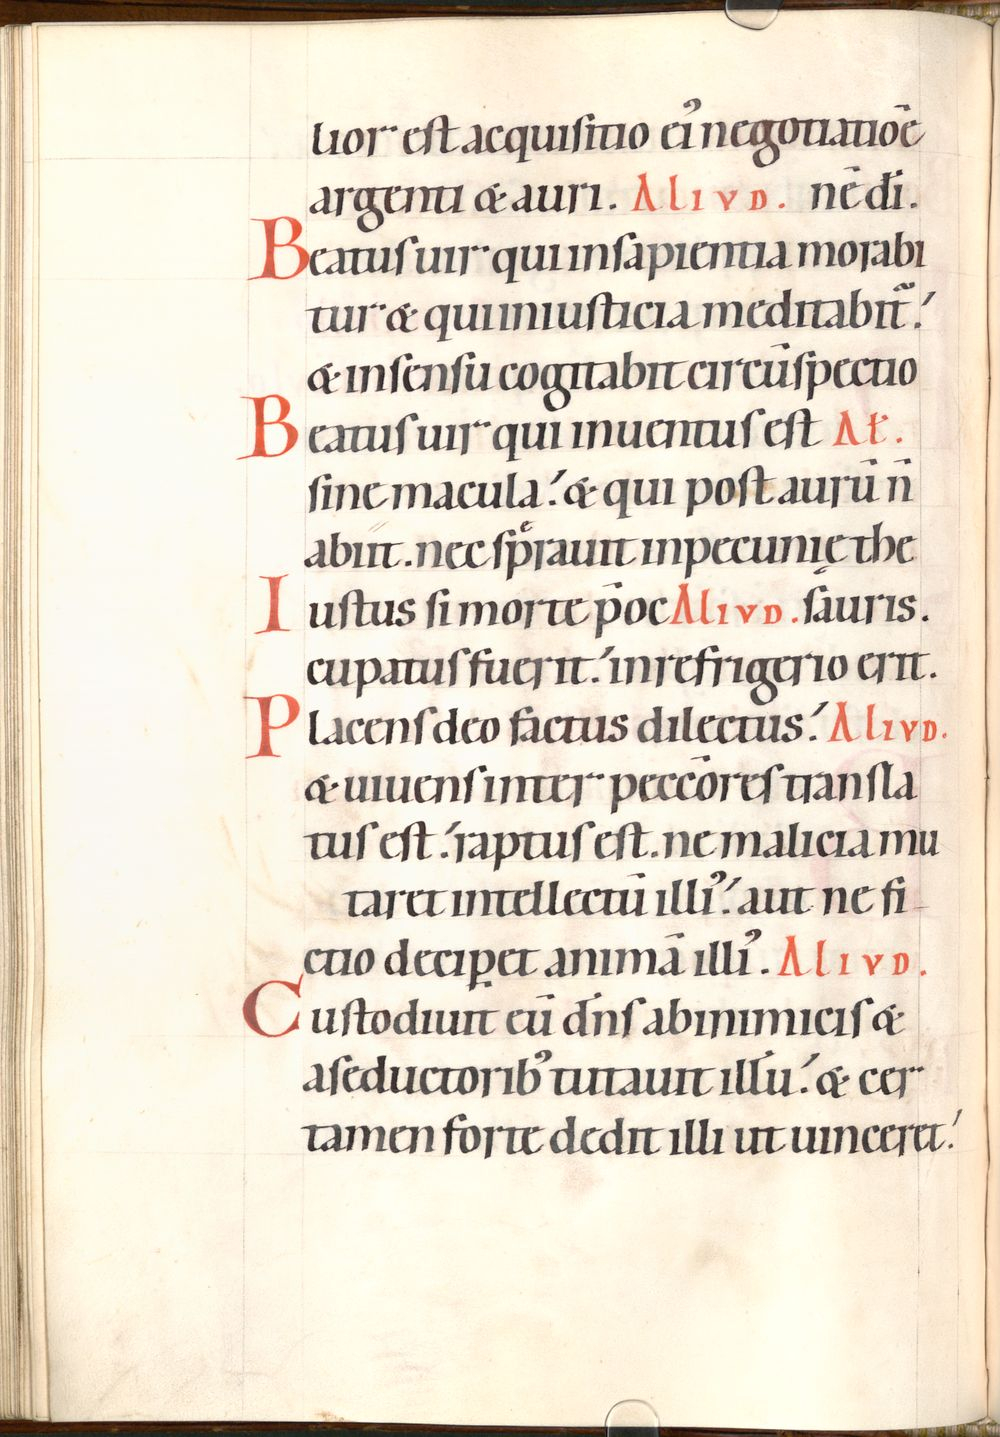 lior est acquisitio ei᾽ negotiatiōe
argenti & auri. Aliud. nē di̅.
Beatus uir qui in sapientia morabi
tur & qui in iusticia meditabit᷑.
& in sensu cogitabit circūspectio
Beatus uir qui inuentus est Al̅.
sine macula. & qui post aurū n̄
abiit. nec sp̄rauit in pecunię the
Iustus si morte p̄oc Aliud. sauris.
cupatus fuerit. in refrigerio erit.
Placens deo factus dilectus. Aliud.
& uiuens inter peccōres transla
tus est. raptus est. ne malicia mu
taret intellectū illi᾽. aut ne fi
ctio decip̲et animā illi᾽. Aliud.
Custodiuit eū dn̄s ab inimicis &
a seductorib᾽ tutauit illū. & cer
tamen forte dedit illi ut uinceret.